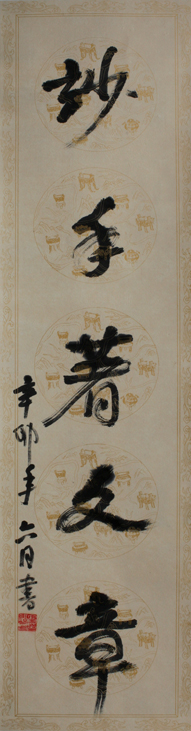 妙手著文章
辛卯年六月書